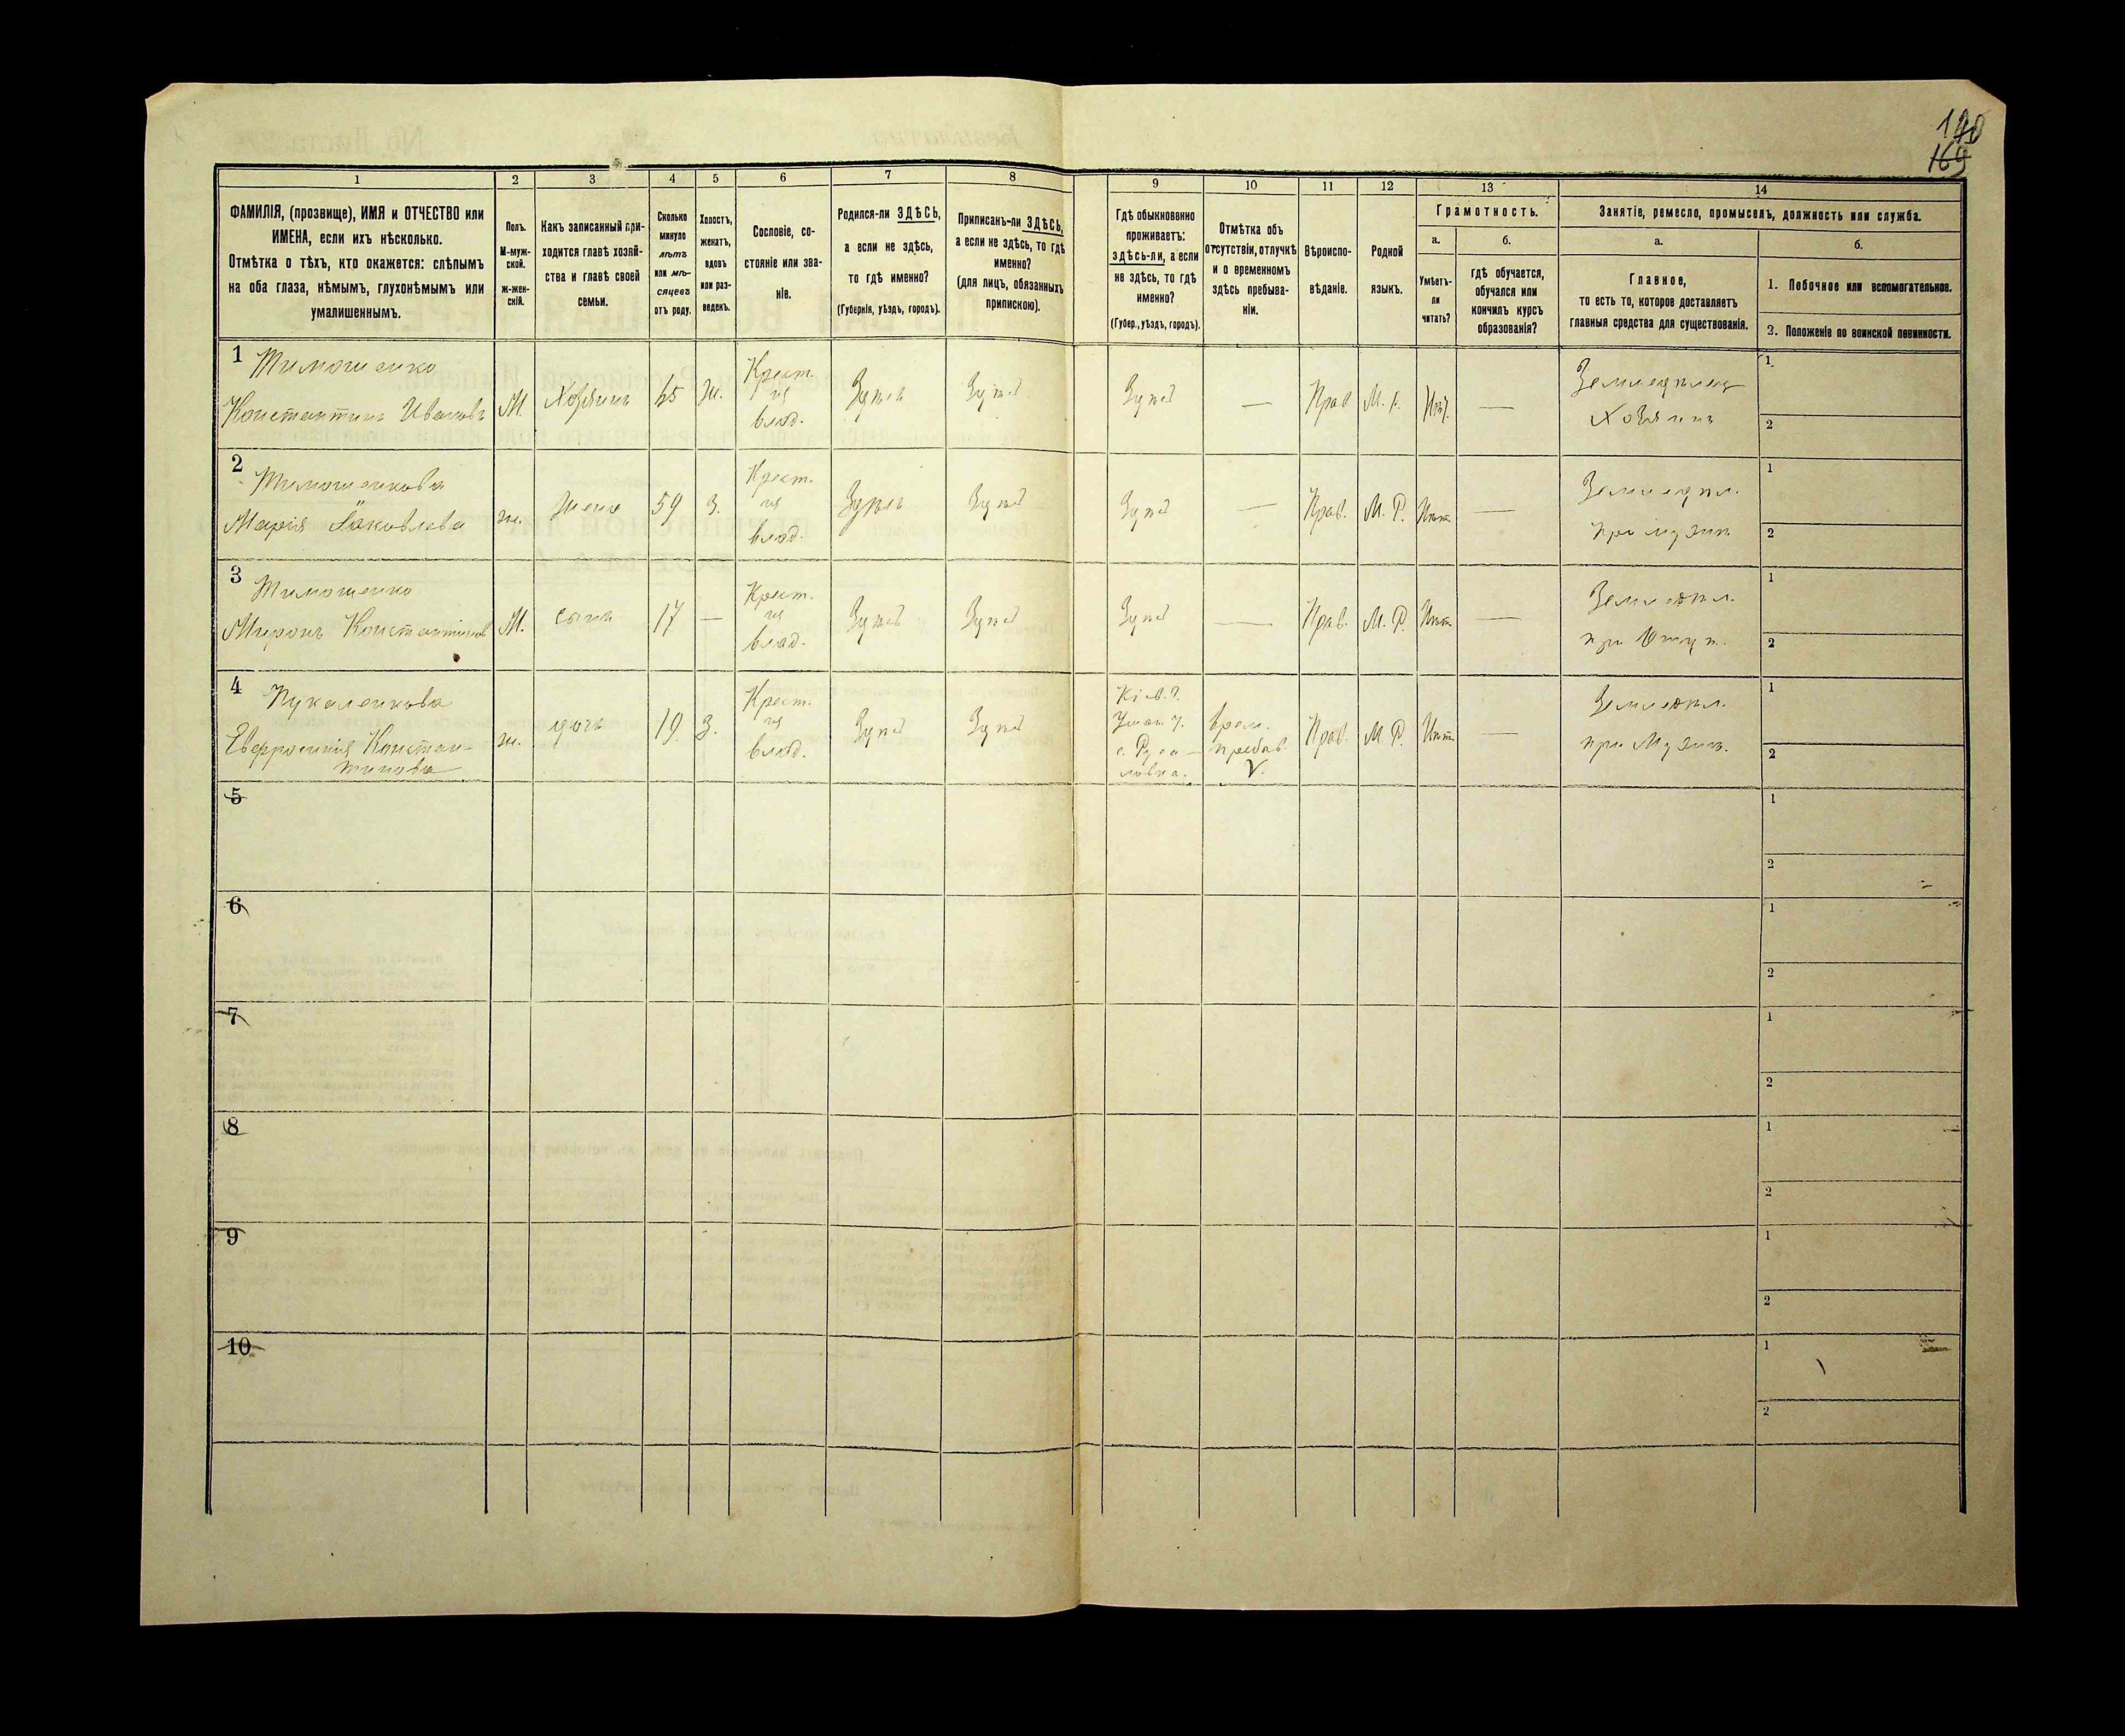 190
169
1
2
3
4
5
6
7
8
9
10
11
12
13
14
ФАМИЛІЯ, (прозвище), ИМЯ и ОТЧЕСТВО или
ИМЕНА, если ихъ нѣсколько.
Отмѣтка о тѣхъ, кто окажется: слѣпымъ
на оба глаза, нѣмымъ, глухонѣмымъ или
умалишеннымъ.
Полъ.
М-муж-
ской.
Ж-жен-
скій.
Какъ записанный при-
ходится главѣ хозяй-
ства и главѣ своей
семьи.
Сколько
минуло
лѣтъ
или мѣ-
сяцевъ
отъ роду.
Холостъ,
женатъ,
вдовъ
или раз-
веденъ.
Сословіе, со-
стояніе или зва-
ніе.
Родился-ли ЗДѢСЬ,
а если не здѣсь,
то гдѣ именно?
(Губернія, уѣздъ, городъ).
Приписанъ-ли ЗДѢСЬ,
а если не здѣсь, то гдѣ
именно?
(для лицъ, обязанныхъ
припискою).
Гдѣ обыкновенно
проживаетъ:
здѣсь-ли, а если
не здѣсь, то гдѣ
именно?
(Губер., уѣздъ, городъ).
Отмѣтка объ
отсутствіи, отлучкѣ
и о временномъ
здѣсь пребыва-
ніи.
Вѣроиспо-
вѣданіе.
Родной
языкъ.
Грамотность.
а.
Умѣетъ-
ли
читать?
б.
гдѣ обучается,
обучался или
кончилъ курсъ
образованія?
Занятіе, ремесло, промыселъ, должность или служба.
а.
Главное,
то есть то, которое доставляетъ
главныя средства для существованія.
б.
1. Побочное или вспомогательное.
2. Положеніе по воинской повинности.
1 Тимошенко
Константинъ Ивановъ
М.
Хозяинъ
Ж.
Крест.
из
влад.
Здѣсь
Здѣсь
Здѣсь
—
Прав
М. Р.
Нѣт.
—
Земледѣлец
Хозяинъ
1
2
2 Тимошенкова
Марія Яковлева
ж.
Жена
59
З.
Крест.
из
влад.
Здѣсь
Здѣсь
Здѣсь
—
Прав.
М. Р.
Нѣт.
—
Земледѣл.
при Мужѣ
1
2
3 Тимошенко
Миронъ Константиновъ
М.
сынъ
17
—
Крест.
из
влад.
Здѣсь
Здѣсь
Здѣсь
—
Прав.
М. Р.
Нѣт.
—
Земледѣл.
при Отцѣ
1
2
4 Пукаленкова
Евфросинія Констан-
тинова
ж.
дочь
19
З.
Крест.
из
влад.
Здѣсь
Здѣсь
Кіев. г.
Уман. у.
с. Руса-
ловка.
врем.
пребыв.
V.
Прав.
М. Р.
Нѣт.
—
Земледѣл.
при Мужѣ.
1
2
5
1
2
6
1
2
7
1
2
8
1
2
9
1
2
10
1
2